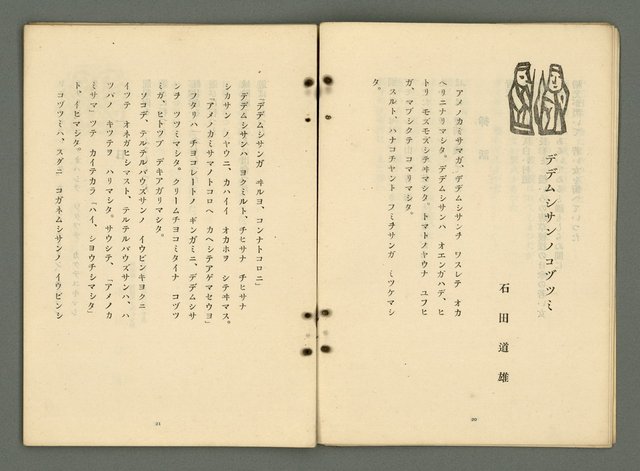 デデムシサンノコヅツミ
石田道雄
アメノカミサマガ、デデムシサンヂ ワスレテ オカ
ヘリニナリマシタ。デデムシサンハ オエンガハデ、ヒ
トリ モズモズシテヰマシタ。トマトノヤウナ ユフヒ
ガ、マブシクテ コマリマシタ。
スルト、ハナコチャント フミチサンガ ミツケマシ
タ。
20
「デデムシサンガ ヰルヨ、コンナトコロニ」
デデムシサンハ、ヨクミルト、チヒサナ チヒサナ
シカサン ノヤウニ、カハイイ オカホヲ シテヰマス。
「アメノカミサマノトコロヘ カヘシテアゲマセウヨ」
フタリハ チヨコレートノ ギンガミニ、デデムシサ
ンヂ ツツミマシタ。クリームチヨコミタイナ コヅツ
ミガ、ヒトツブ デキアガリマシタ。
ソコデ、テルテルバウズサンノ イウビンキヨクニ
イツテ オネガヒシマスト、テルテルバウズサンハ、ハ
ツパノ キツテヲ ハリマシタ。サウシテ、「アメノカ
ミサマ」ツテ カイテカラ「ハイ、シヨウチシマシタ」
ト、イヒマシタ。
コヅツミハ、スグニ コガネムシサンノ イウビンシ
21